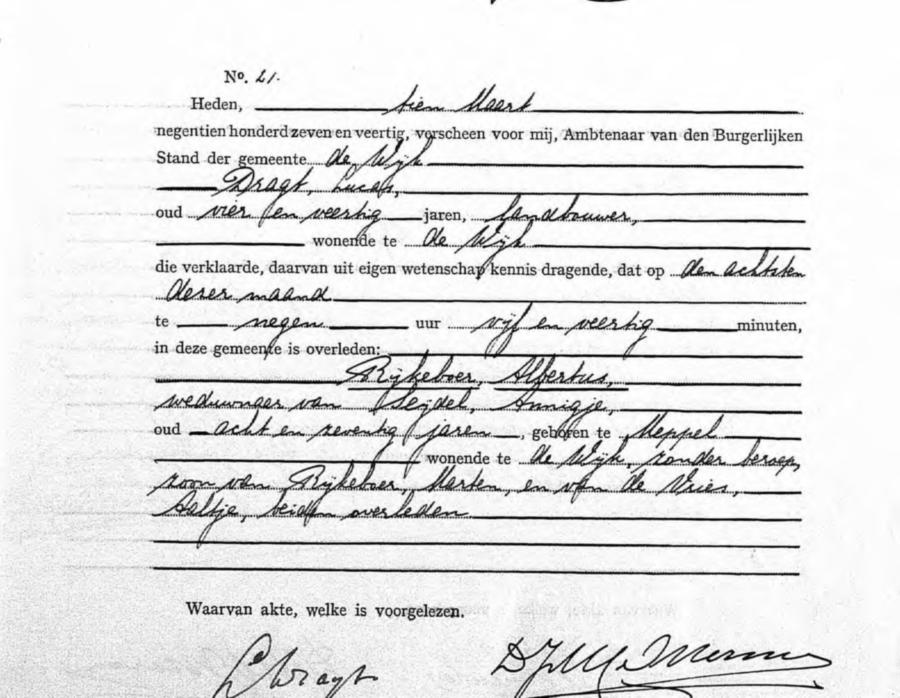 No. 21.
Heden, tien Maart
negentien honderd zeven en veertig, verscheen voor mij, Ambtenaar van den Burgerlijken
Stand der gemeente de Wijk
Dragt, Lucas,
oud vier en veertig jaren, landbouwer,
wonende te de Wijk
die verklaarde, daarvan uit eigen wetenschap kennis dragende, dat op den achtsten
dezer maand
te negen uur vijf en veertig minuten,
in deze gemeente is overleden:
Rijkeboer, Albertus,
weduwnaar van Seijdel, Annigje,
oud acht en zeventig jaren, geboren te Meppel
wonende te de Wijk, zonder beroep,
zoon van Rijkeboer, Marten, en van de Vries,
Aaltje, beiden overleden
Waarvan akte, welke is voorgelezen.
L Dragt